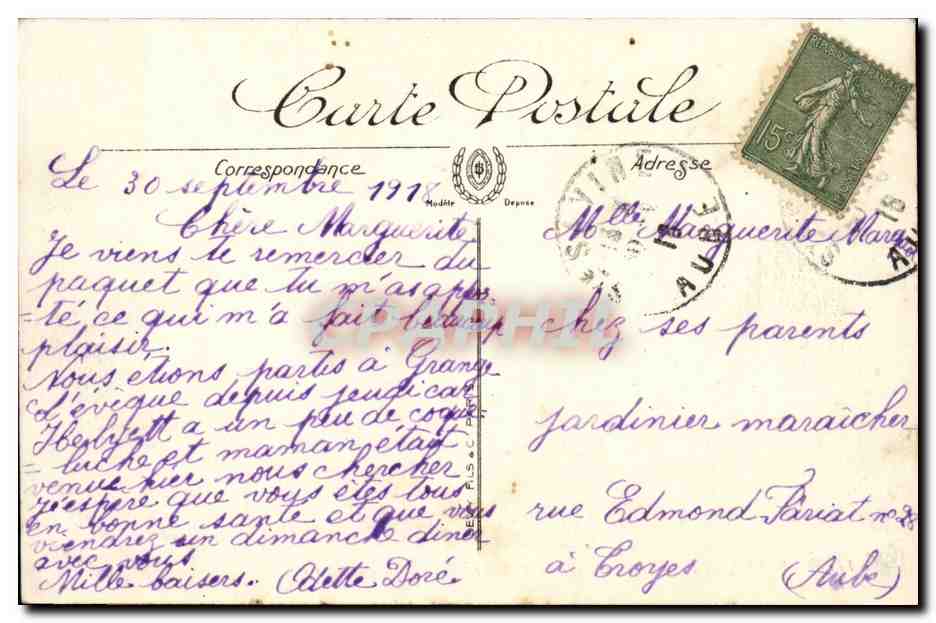 Carte Postale
Correspondance
Adresse
Modèle Déposé
RÉPUBLIQUE FRANÇAISE
15c
AUBE
18
AU
Le 30 septembre 1918
Chère Marguerite
Je viens te remercier du
paquet que tu m'as appor
=té ce qui m'a fait beaucoup
plaisir.
Nous étions partis à Grange
L'évêque depuis jeudi car
a un peu de coque=
=luche et maman était
venue hier nous chercher
J'espère que vous êtes tous
en bonne santé et que vous
viendrez un dimanche diner
avec vous
Mille baisers. Odette Doré
FILS & C. PARIS
Mlle Marguerite
chez ses parents
jardinier maraîcher
rue Edmond Fariat no 28
à Troyes (Aube)
CPAPHIL